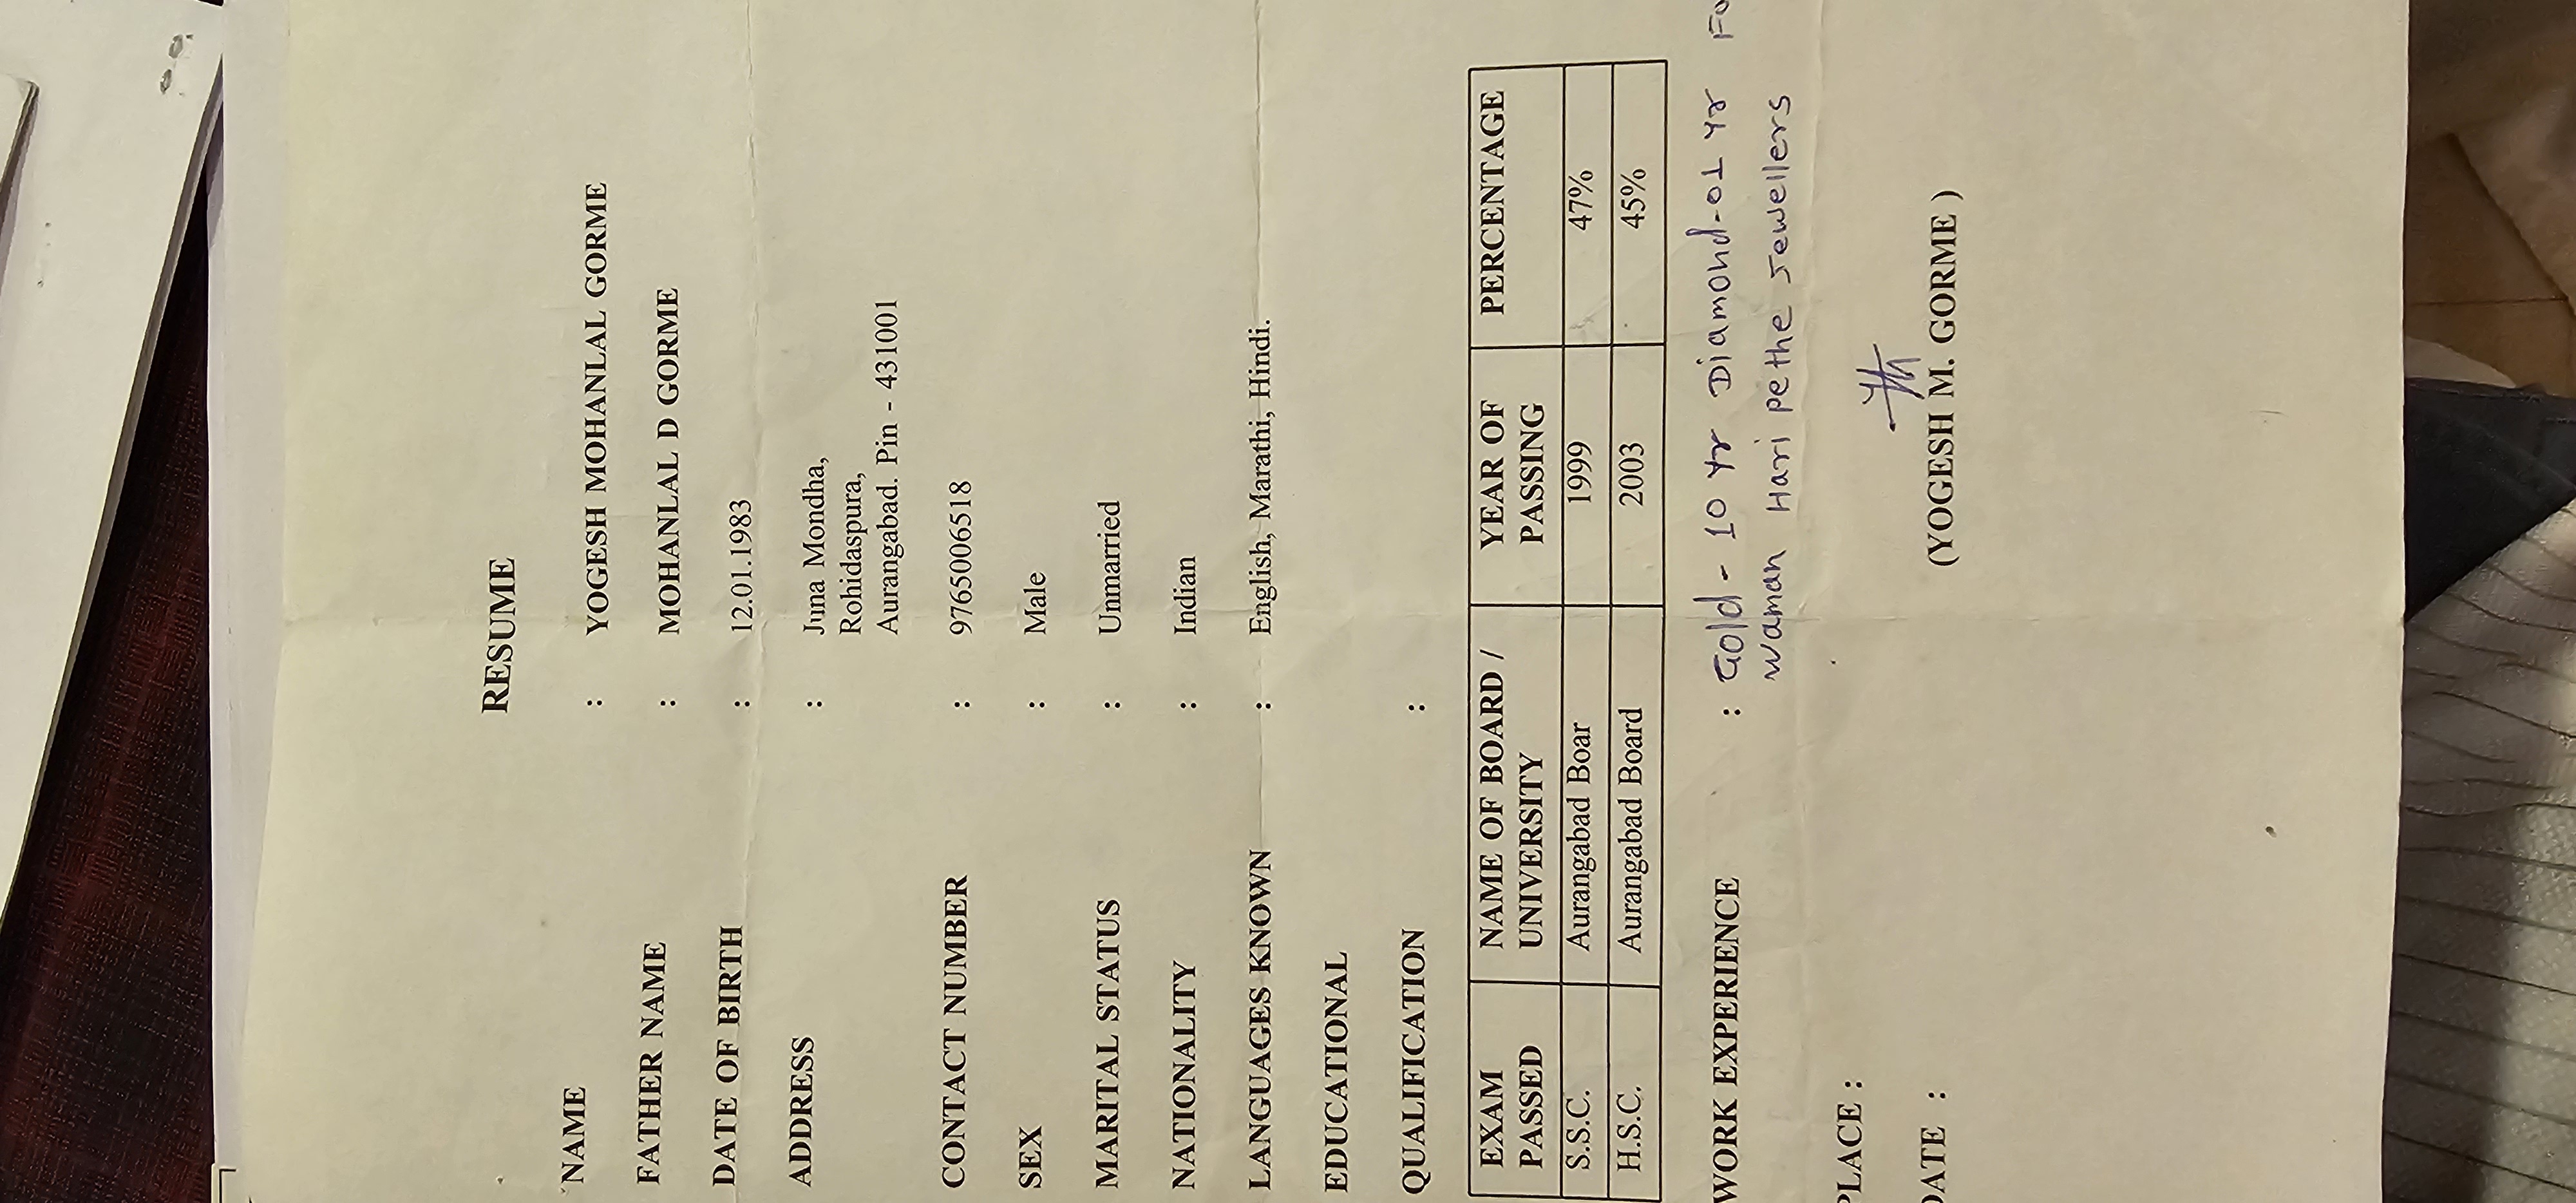 RESUME
NAME : YOGESH MOHANLAL GORME
FATHER NAME : MOHANLAL D GORME
DATE OF BIRTH : 12.01.1983
ADDRESS : Juna Mondha,
Rohidaspura,
Aurangabad. Pin - 431001
CONTACT NUMBER : 9765006518
SEX : Male
MARITAL STATUS : Unmarried
NATIONALITY : Indian
LANGUAGES KNOWN : English, Marathi, Hindi.
EDUCATIONAL
QUALIFICATION :
EXAM PASSED NAME OF BOARD / UNIVERSITY YEAR OF PASSING PERCENTAGE
S.S.C. Aurangabad Boar 1999 47%
H.S.C. Aurangabad Board 2003 45%
WORK EXPERIENCE : Gold - 10 Yr Diamond-01 Yr
Waman Hari Pethe Jewellers
PLACE :
DATE : (YOGESH M. GORME )